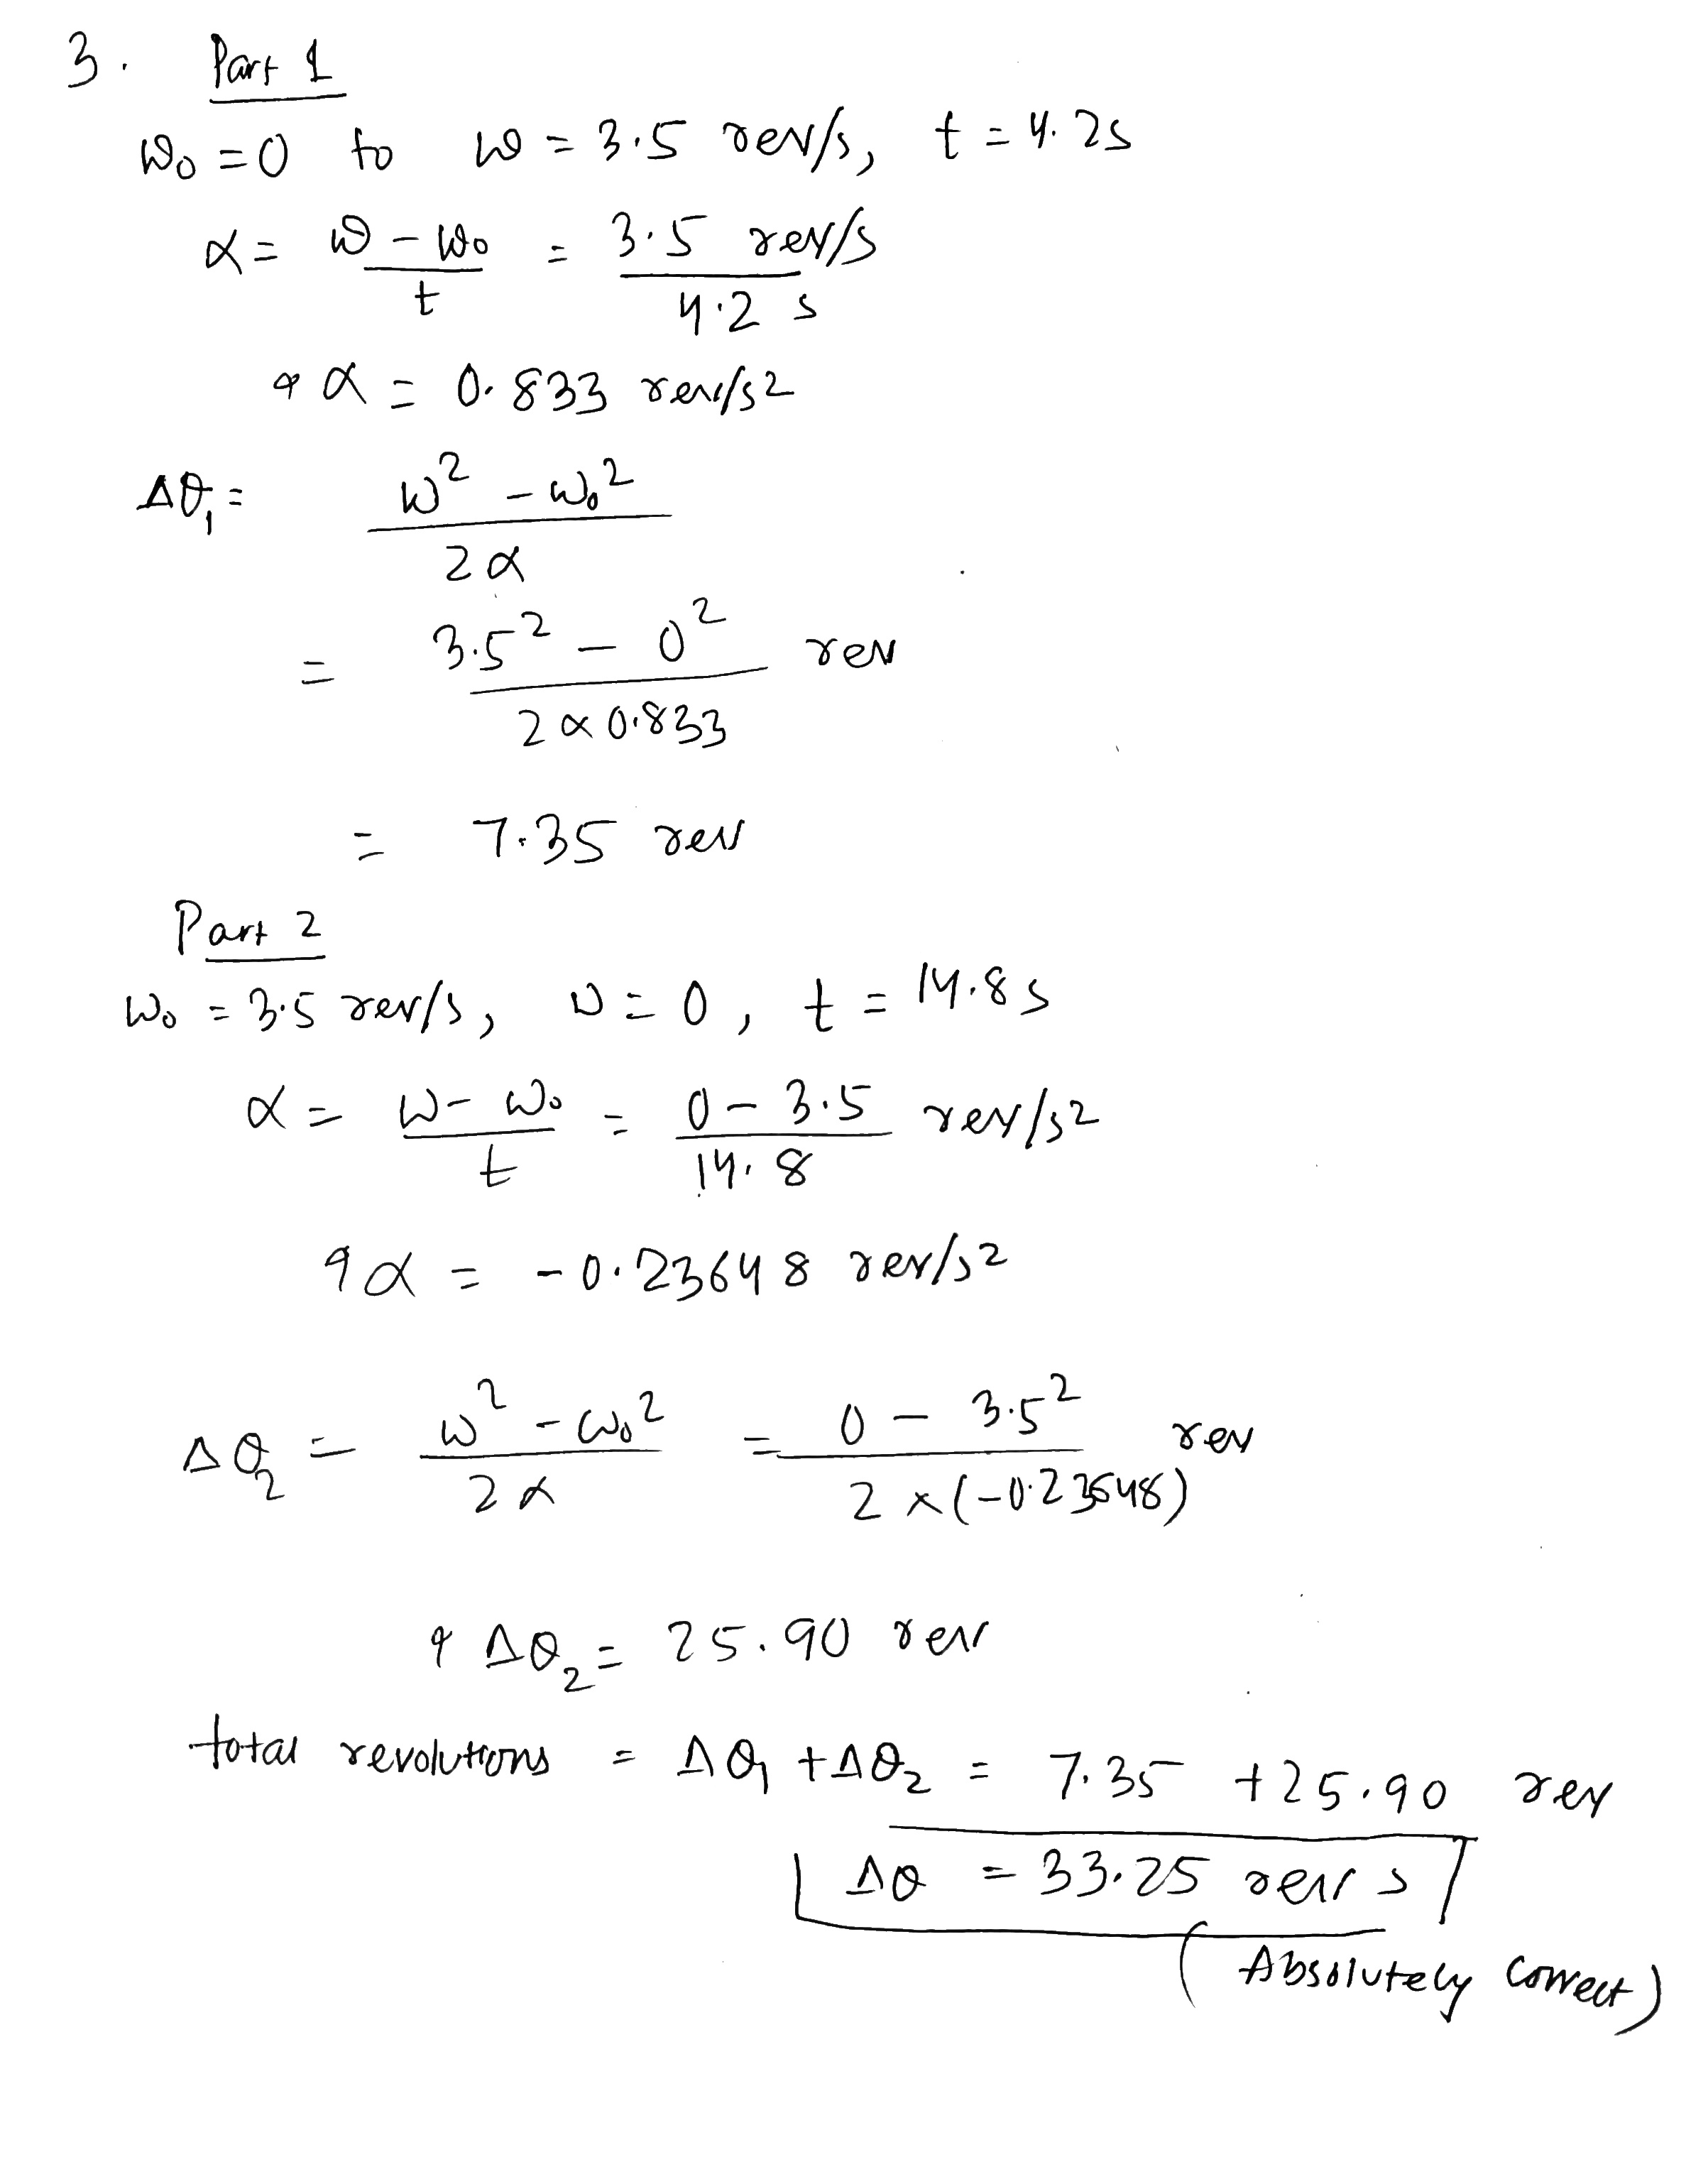 3. Part 1
ω₀ = 0 to ω = 3.5 rev/s, t = 4.2s
α = (ω - ω₀)/t = (3.5 rev/s)/(4.2 s)
α = 0.833 rev/s2
Δθ₁ = (ω² - ω₀²)/(2α)
= (3.5² - 0²)/(2 × 0.833) rev
= 7.35 rev
Part 2
ω₀ = 3.5 rev/s, ω = 0, t = 14.8s
α = (ω - ω₀)/t = (0 - 3.5)/(14.8) rev/s2
α = -0.23648 rev/s2
Δθ₂ = (ω² - ω₀²)/(2α) = (0 - 3.5²)/(2 × (-0.23648)) rev
Δθ₂ = 25.90 rev
total revolutions = Δθ₁ + Δθ₂ = 7.35 + 25.90 rev
Δθ = 33.25 revs
(Absolutely correct)